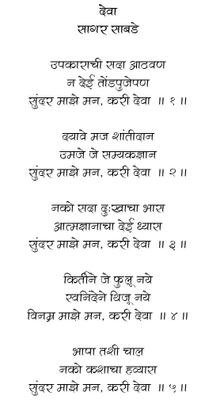 देवा
सागर साबडे
उपकाराची सदा आठवण
न देई तोंडपुजेपण
सुंदर माझे मन, करी देवा ॥ १ ॥
दयावे मज शांतीदान
उमजे जे सम्यकज्ञान
सुंदर माझे मन, करी देवा ॥ २ ॥
नको सदा दुःखाचा भास
आत्मज्ञानाचा देई ध्यास
सुंदर माझे मन, करी देवा ॥ ३ ॥
कितीने जे फुलू नये
स्वनिंदेने थिजू नये
विनम्र माझे मन, करी देवा ॥ ४ ॥
भाषा तशी चाल
नको कशाचा हव्यास
सुंदर माझे मन, करी देवा ॥ ५ ॥